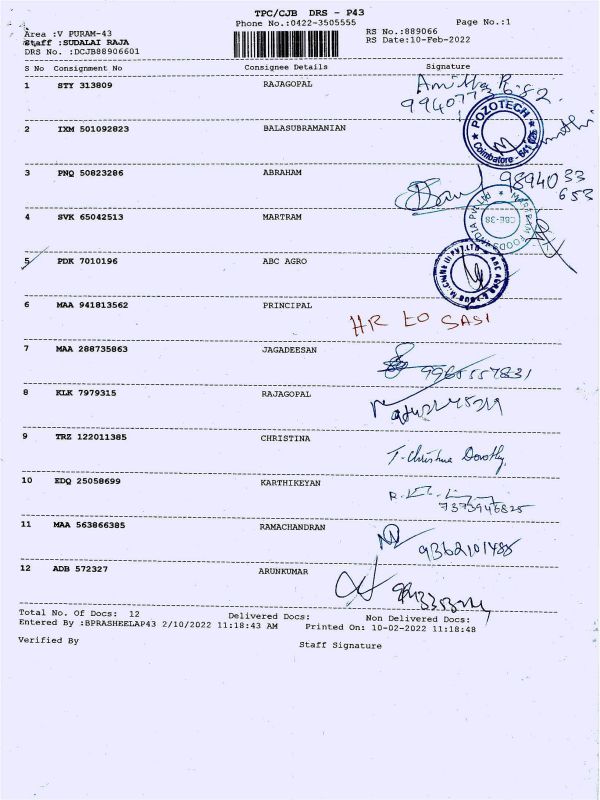 TPC/CJB DRS - P43
Phone No.:0422-3505555 Page No.:1
Area :V PURAM-43 RS No.:889066
Staff :SUDALAI RAJA RS Date:10-Feb-2022
DRS No. :DCJB88906601
S No Consignment No Consignee Details Signature
1 STY 313809 RAJAGOPAL
POZOTECH
Coimbatore - 641
2 IXM 501092823 BALASUBRAMANIAN
3 PNQ 50823286 ABRAHAM
9894033
653
4 SVK 65042513 MARTRAM
CBE-38
5 PDK 7010196 ABC AGRO
6 MAA 941813562 PRINCIPAL
HR LO SASI
7 MAA 288735863 JAGADEESAN
9965557831
8 KLK 7979315 RAJAGOPAL
9 TRZ 122011385 CHRISTINA
T-Christina Dorothy,
10 EDQ 25058699 KARTHIKEYAN
7373946825
11 MAA 563866385 RAMACHANDRAN
9362101485
12 ADB 572327 ARUNKUMAR
Total No. Of Docs: 12 Delivered Docs: Non Delivered Docs:
Entered By :BPRASHEELAP43 2/10/2022 11:18:43 AM Printed On: 10-02-2022 11:18:48
Verified By Staff Signature